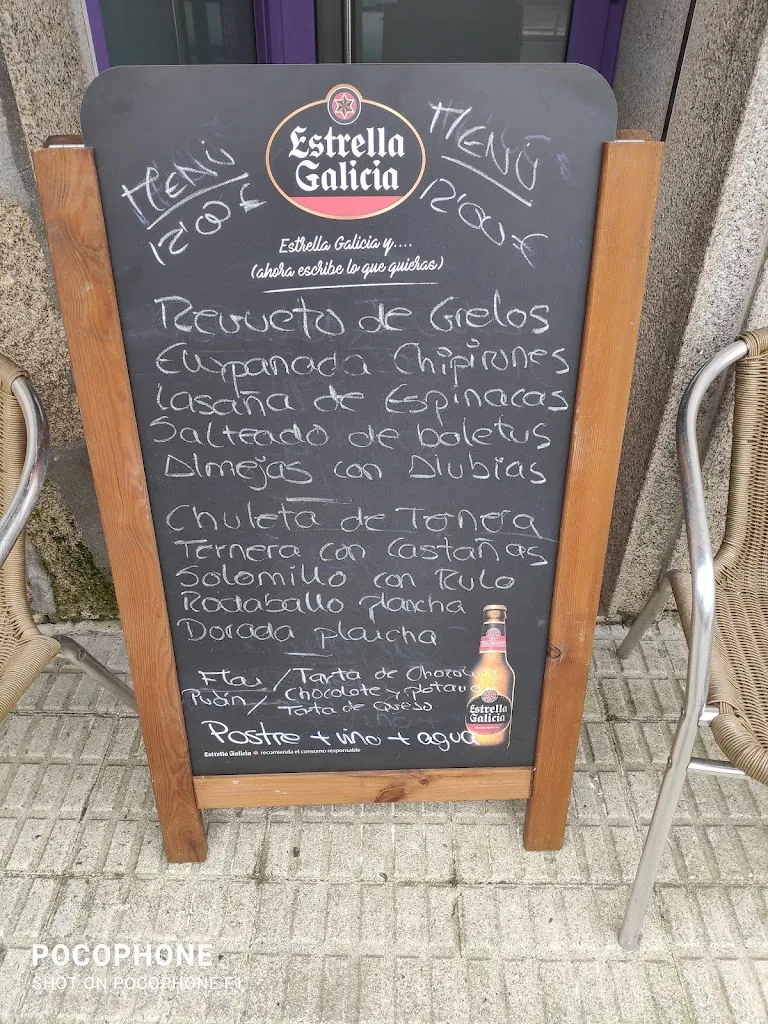 MENÚ
12'00€
Estrella
Galicia
MENÚ
12'00€
Estrella Galicia y....
(ahora escribe lo que quieras)
Revueto de Grelos
Empanada Chipirones
Lasaña de Espinacas
Salteado de boletus
Almejas con Alubias
Chuleta de Ternera
Ternera con Castañas
Solomillo con Rulo
Rodaballo plancha
Dorada plancha
Flan / Tarta de Chocolate
Pudín / Chocolate y platano
Tarta de Queso
Postre + vino + agua
Estrella
Galicia
Estrella Galicia recomienda el consumo responsable
POCOPHONE
SHOT ON POCOPHONE F1